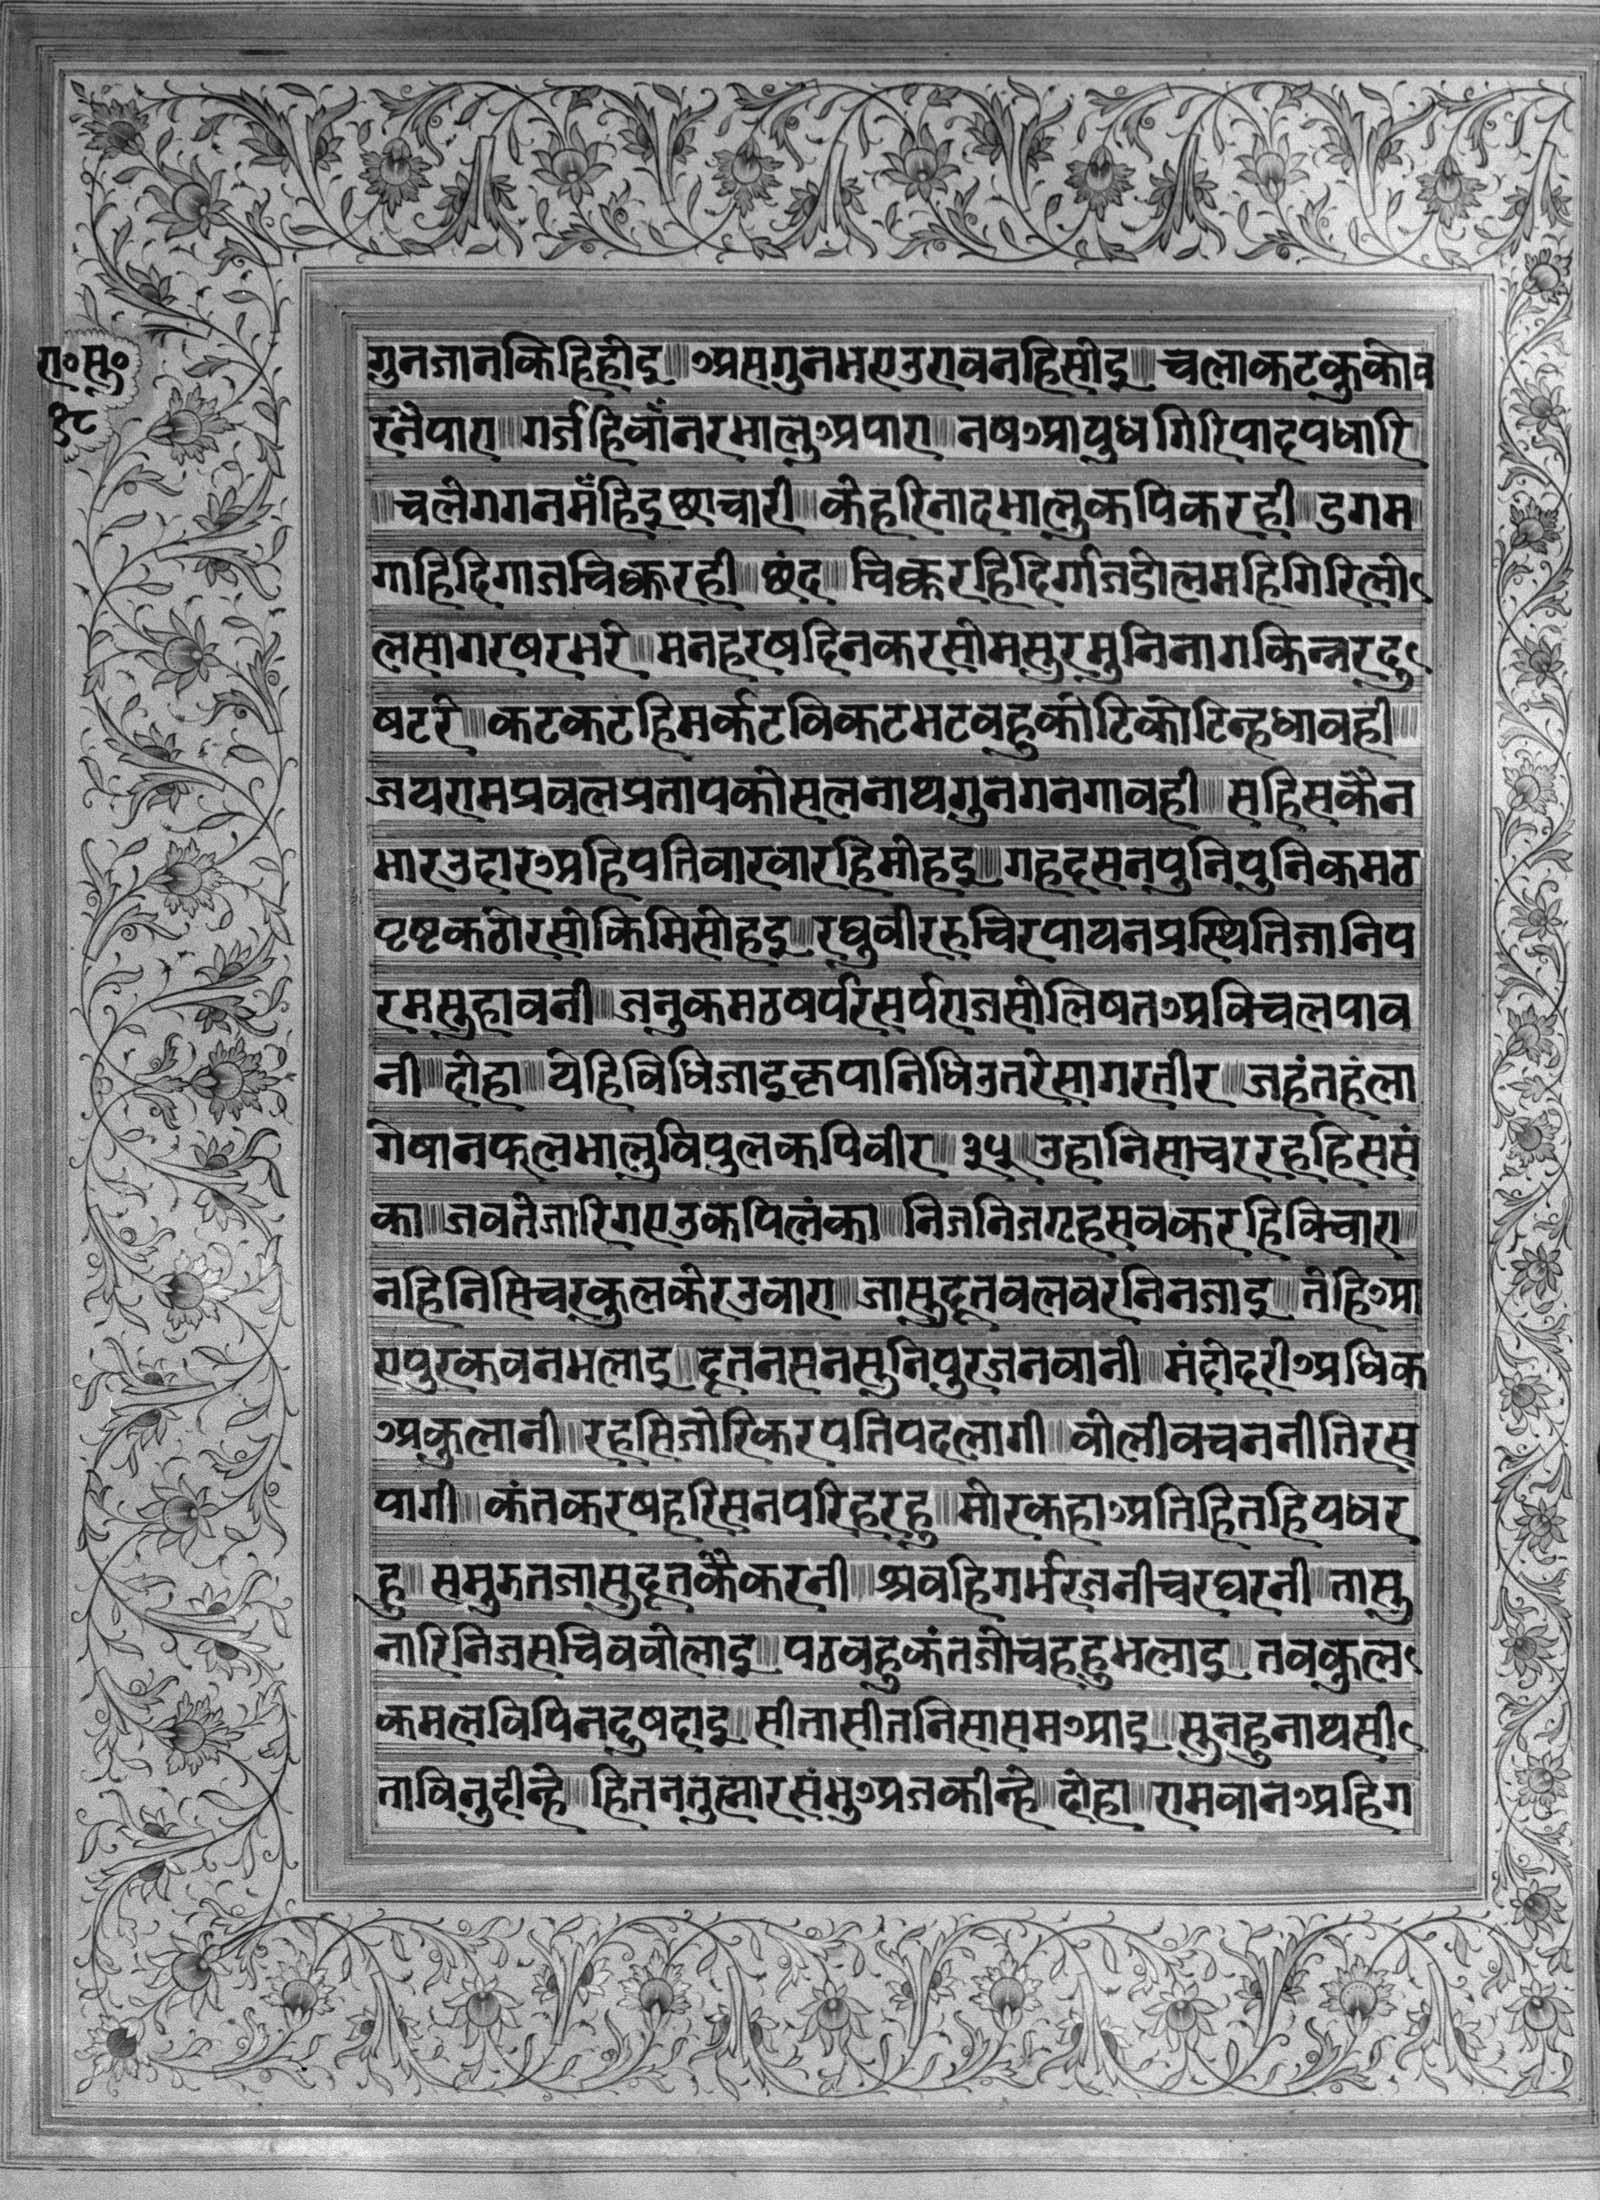 रा॰सुं॰
१८
गुनजानकिहिहोइ ॥ असगुनभएउरावनहिसोइ ॥ चलाकटकुकोव
रनैपारा ॥ गर्जहिवाँनरभालुअपारा ॥ नषआयुधगिरिपादपधारि
॥ चलेगगनमँहिइछाचारी ॥ केहरिनादभालुकपिकरही ॥ डगम
गाहिदिगाजचिक्करही ॥ छंद ॥ चिक्करहिदिर्गाजडोलमहिगिरिलो
लसागरषरभरे ॥ मनहरषदिनकरसोमसुरमुनिनागकिन्नरदु
षटरे ॥ कटकटहिमर्कटविकटभटवहुकोटिकोटिन्हधावही ॥
जयरामप्रवलप्रतापकोसलनाथगुनगनगावही ॥ सहिसकैन
भारउदारअहिपतिवारवारहिमोहइ ॥ गहदसनपुनिपुनिकमठ
पृष्टकठोरसोकिमिसोहइ ॥ रघुवीररुचिरपायनप्रस्थितिजानिप
रमसुहावनी ॥ जनुकमठषर्परसर्पराजसोलिषतअविचलपाव
नी ॥ दोहा ॥ येहिविधिजाइकृपानिधिउतरेसागरतीर ॥ जहंतहंला
गेषानफलभालुविपुलकपिवीर ॥ ३५ ॥ उहानिसाचररहहिससं
का ॥ जवतेजारिगएउकपिलंका ॥ निजनिजगृहसवकरहिविचारा ॥
नहिनिसिचरकुलकेरउवारा ॥ जासुदूतवलवरनिनजाइ ॥ तेहिआ
एपुरकवनभलाइ ॥ दूतनसनसुनिपुरजनवानी ॥ मंदोदरीअधिक
अकुलानी ॥ रहसिजोरिकरपतिपदलागी ॥ वोलीवचननीतिरस
पागी ॥ कंतकरषहरिसनपरिहरहु ॥ मोरकहाअतिहितहियधर
हु ॥ समुझतजासुदूतकैकरनी ॥ श्रवहिगर्भरजनीचरघरनी ॥ तासु
नारिनिजसचिववोलाइ ॥ पठवहुकंतजोचहहुभलाइ ॥ तवकुल
कमलविपिनदुषदाइ ॥ सीतासीतनिसासमआइ ॥ सुनहुनाथसी
ताविनुदीन्हे ॥ हितनतुह्मारसंभुअजकीन्हे ॥ दोहा ॥ रामवानअहिग